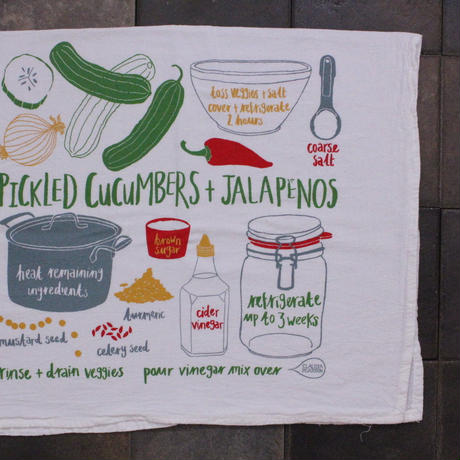 toss veggies + salt
cover + refrigerate
2 hours
coarse
salt
PICKLED CUCUMBERS + JALAPEÑOS
heat remaining
ingredients
brown
sugar
turmeric
cider
vinegar
refrigerate
up to 3 weeks
mustard seed
celery seed
rinse + drain veggies
pour vinegar mix over
CLAUDIA
PEARSON